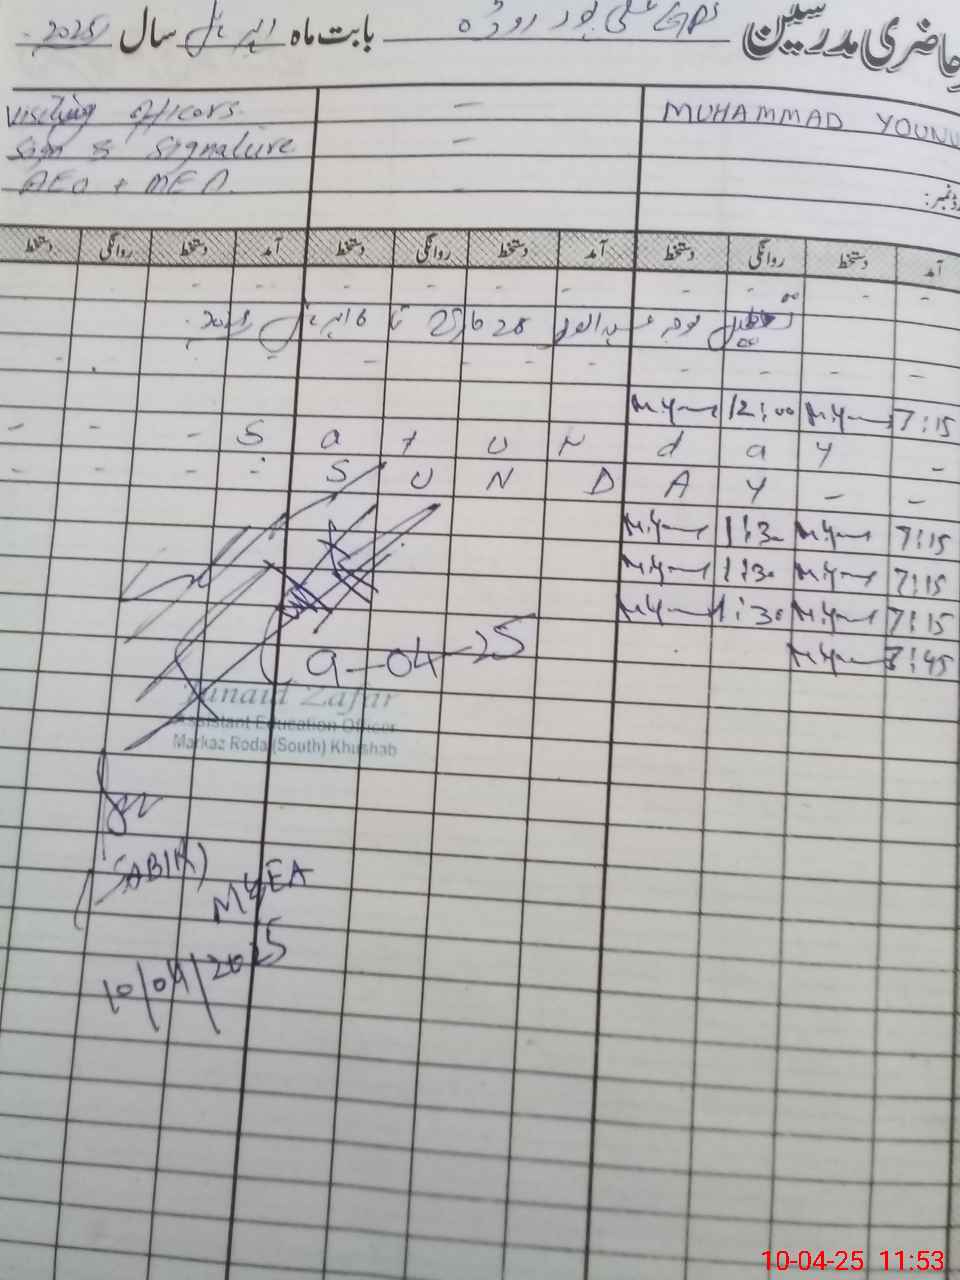 حاضری مدرسین GPS علی پور روڈہ بابت ماہ اپریل سال 2025
MUHAMMAD YOUNU
Visiting officers
Sign & Signature
AEO + MEA
آمد دستخط روانگی دستخط آمد دستخط روانگی دستخط آمد دستخط روانگی دستخط
7:15 M.Y 12:00 M.Y
Saturday
SUNDAY
7:15 M.Y 1:30 M.Y
7:15 M.Y 1:30 M.Y
7:15 M.Y 1:30 M.Y
8:45 M.Y
9-04-25
Junaid Zafar
Assistant Education Officer
Markaz Roda (South) Khushab
(SABIR)
MEA
10/04/2025
10-04-25 11:53